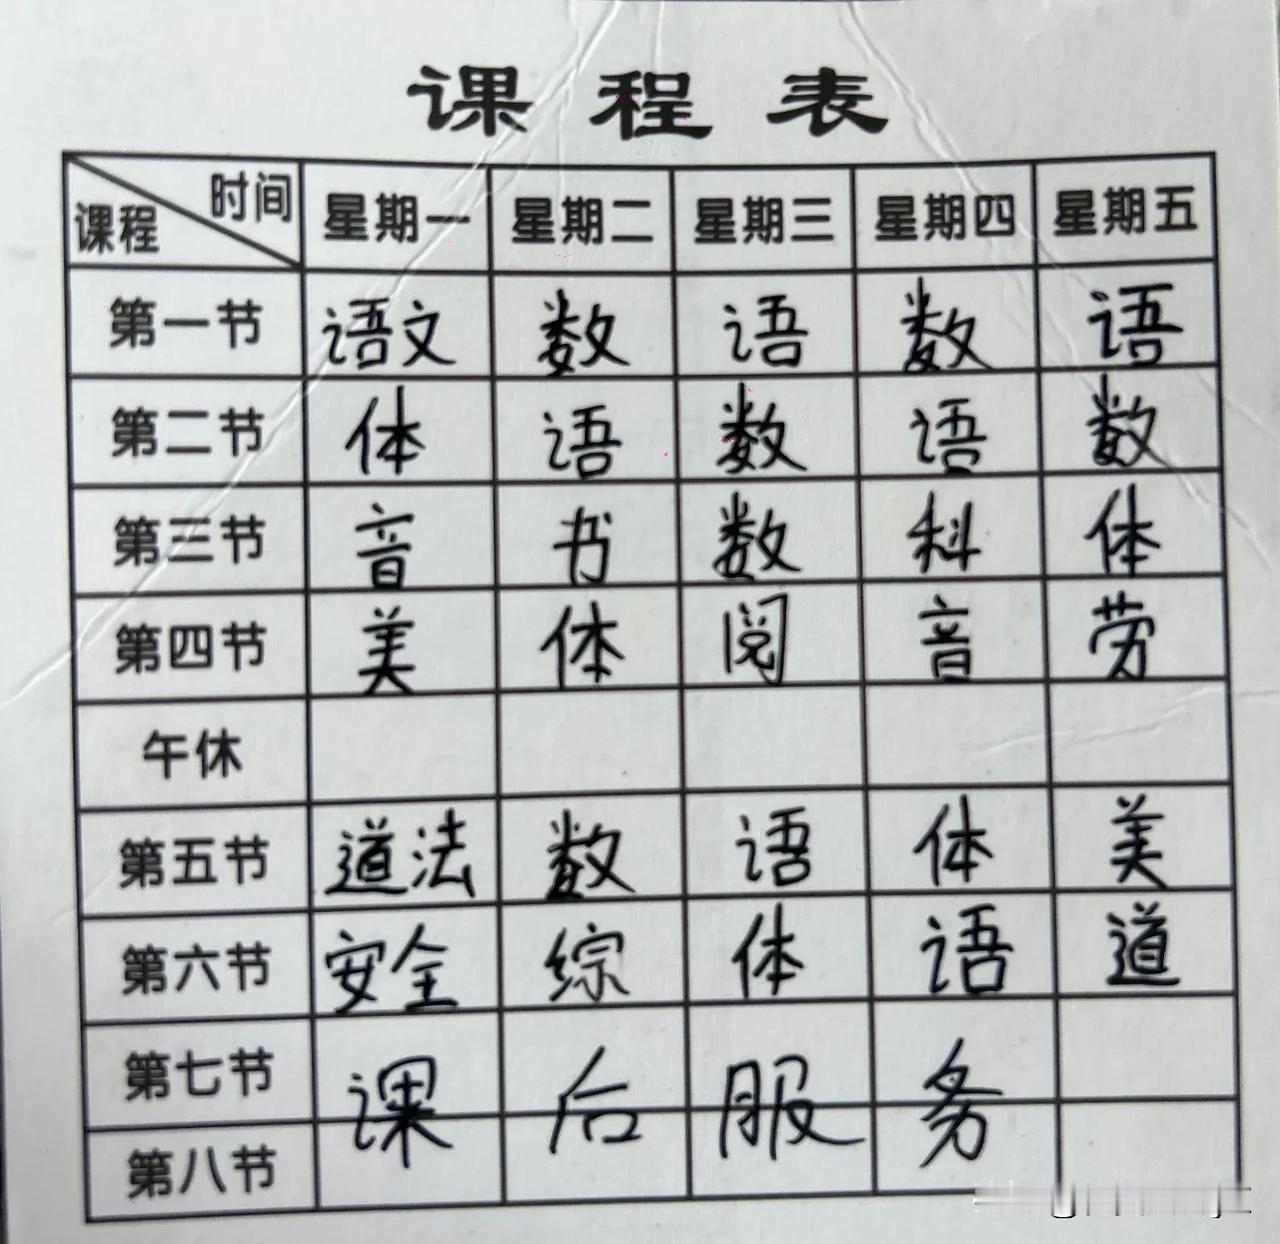 课程表
时间 课程 星期一 星期二 星期三 星期四 星期五
第一节 语文 数 语 数 语
第二节 体 语 数 语 数
第三节 音 书 数 科 体
第四节 美 体 阅 音 劳
午休
第五节 道法 数 语 体 美
第六节 安全 综 体 语 道
第七节
课后服务
第八节